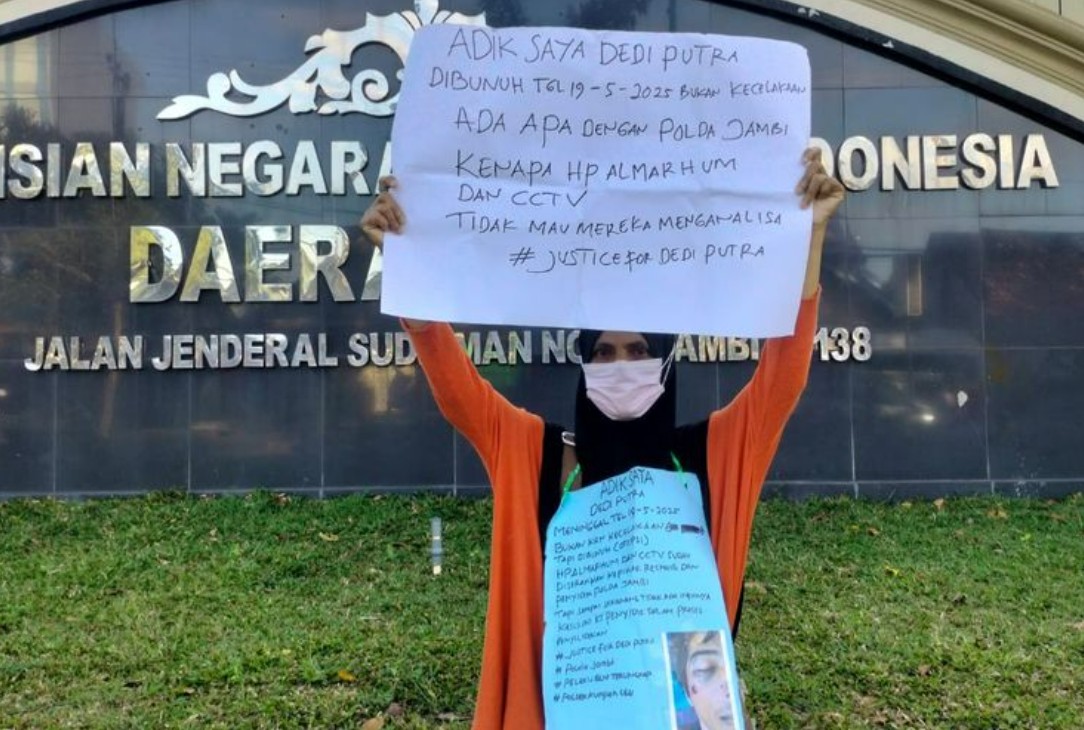 ISIAN NEGARA DONESIA
DAERA
JALAN JENDERAL SUD MAN NO AMBI 138
ADIK SAYA DEDI PUTRA
DIBUNUH TGL 19-5-2025 BUKAN KECELAKAAN
ADA APA DENGAN POLDA JAMBI
KENAPA HP ALMARHUM
DAN CCTV
TIDAK MAU MEREKA MENGANALISA
# JUSTICE FOR DEDI PUTRA
ADIK SAYA
DEDI PUTRA
MENINGGAL TGL 19-5-2025
BUKAN KECELAKAAN
TAPI DIBUNUH
HP ALMARHUM DAN CCTV SUDAH
DISERAHKAN DAN
PENYIDIK POLDA JAMBI
TAPI SAMPAI SEKARANG TIDAK ADA
PENYIDIK DALAM PROSES
# JUSTICE FOR DEDI PUTRA
# POLDA JAMBI
# PELAKU BLM TERUNGKAP